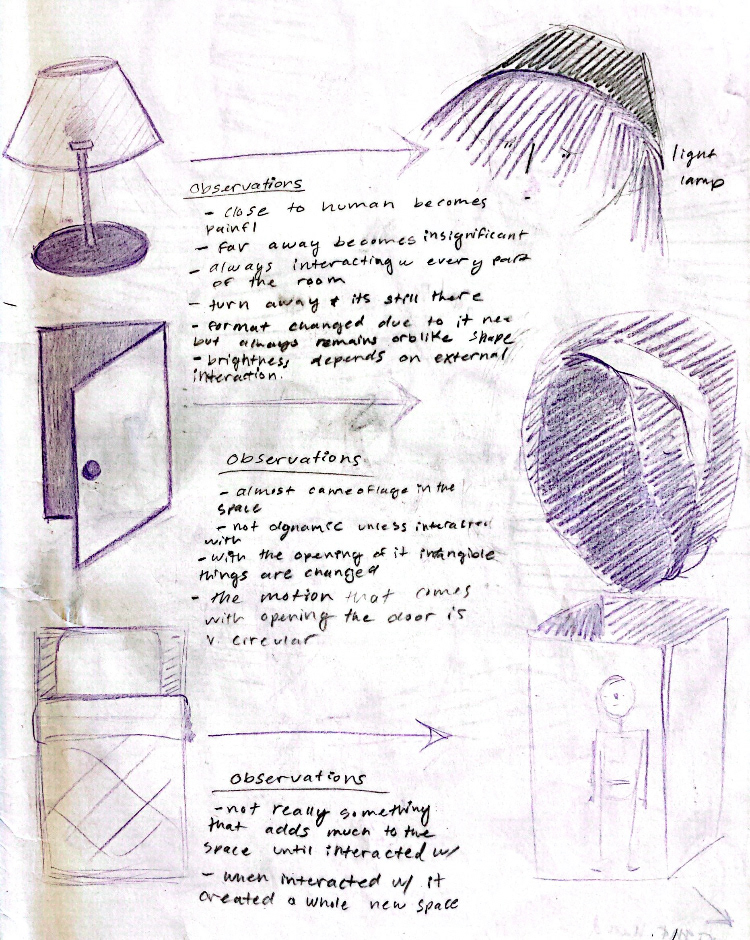 light
lamp
Observations
- close to human becomes
painfl
- far away becomes insignificant
- always interacting w every part
of the room
- turn away & its still there
- format changed due to it
but always remains orblike shape
- brightness depends on external
interaction.
Observations
- almost cameoflage in the
space
- not dynamic unless interacted
with
- with the opening of it intangible
things are changed
- the motion that comes
with opening the door is
v. circular
Observations
- not really something
that adds much to the
space until interacted w/
- when interacted w/ it
created a whole new space